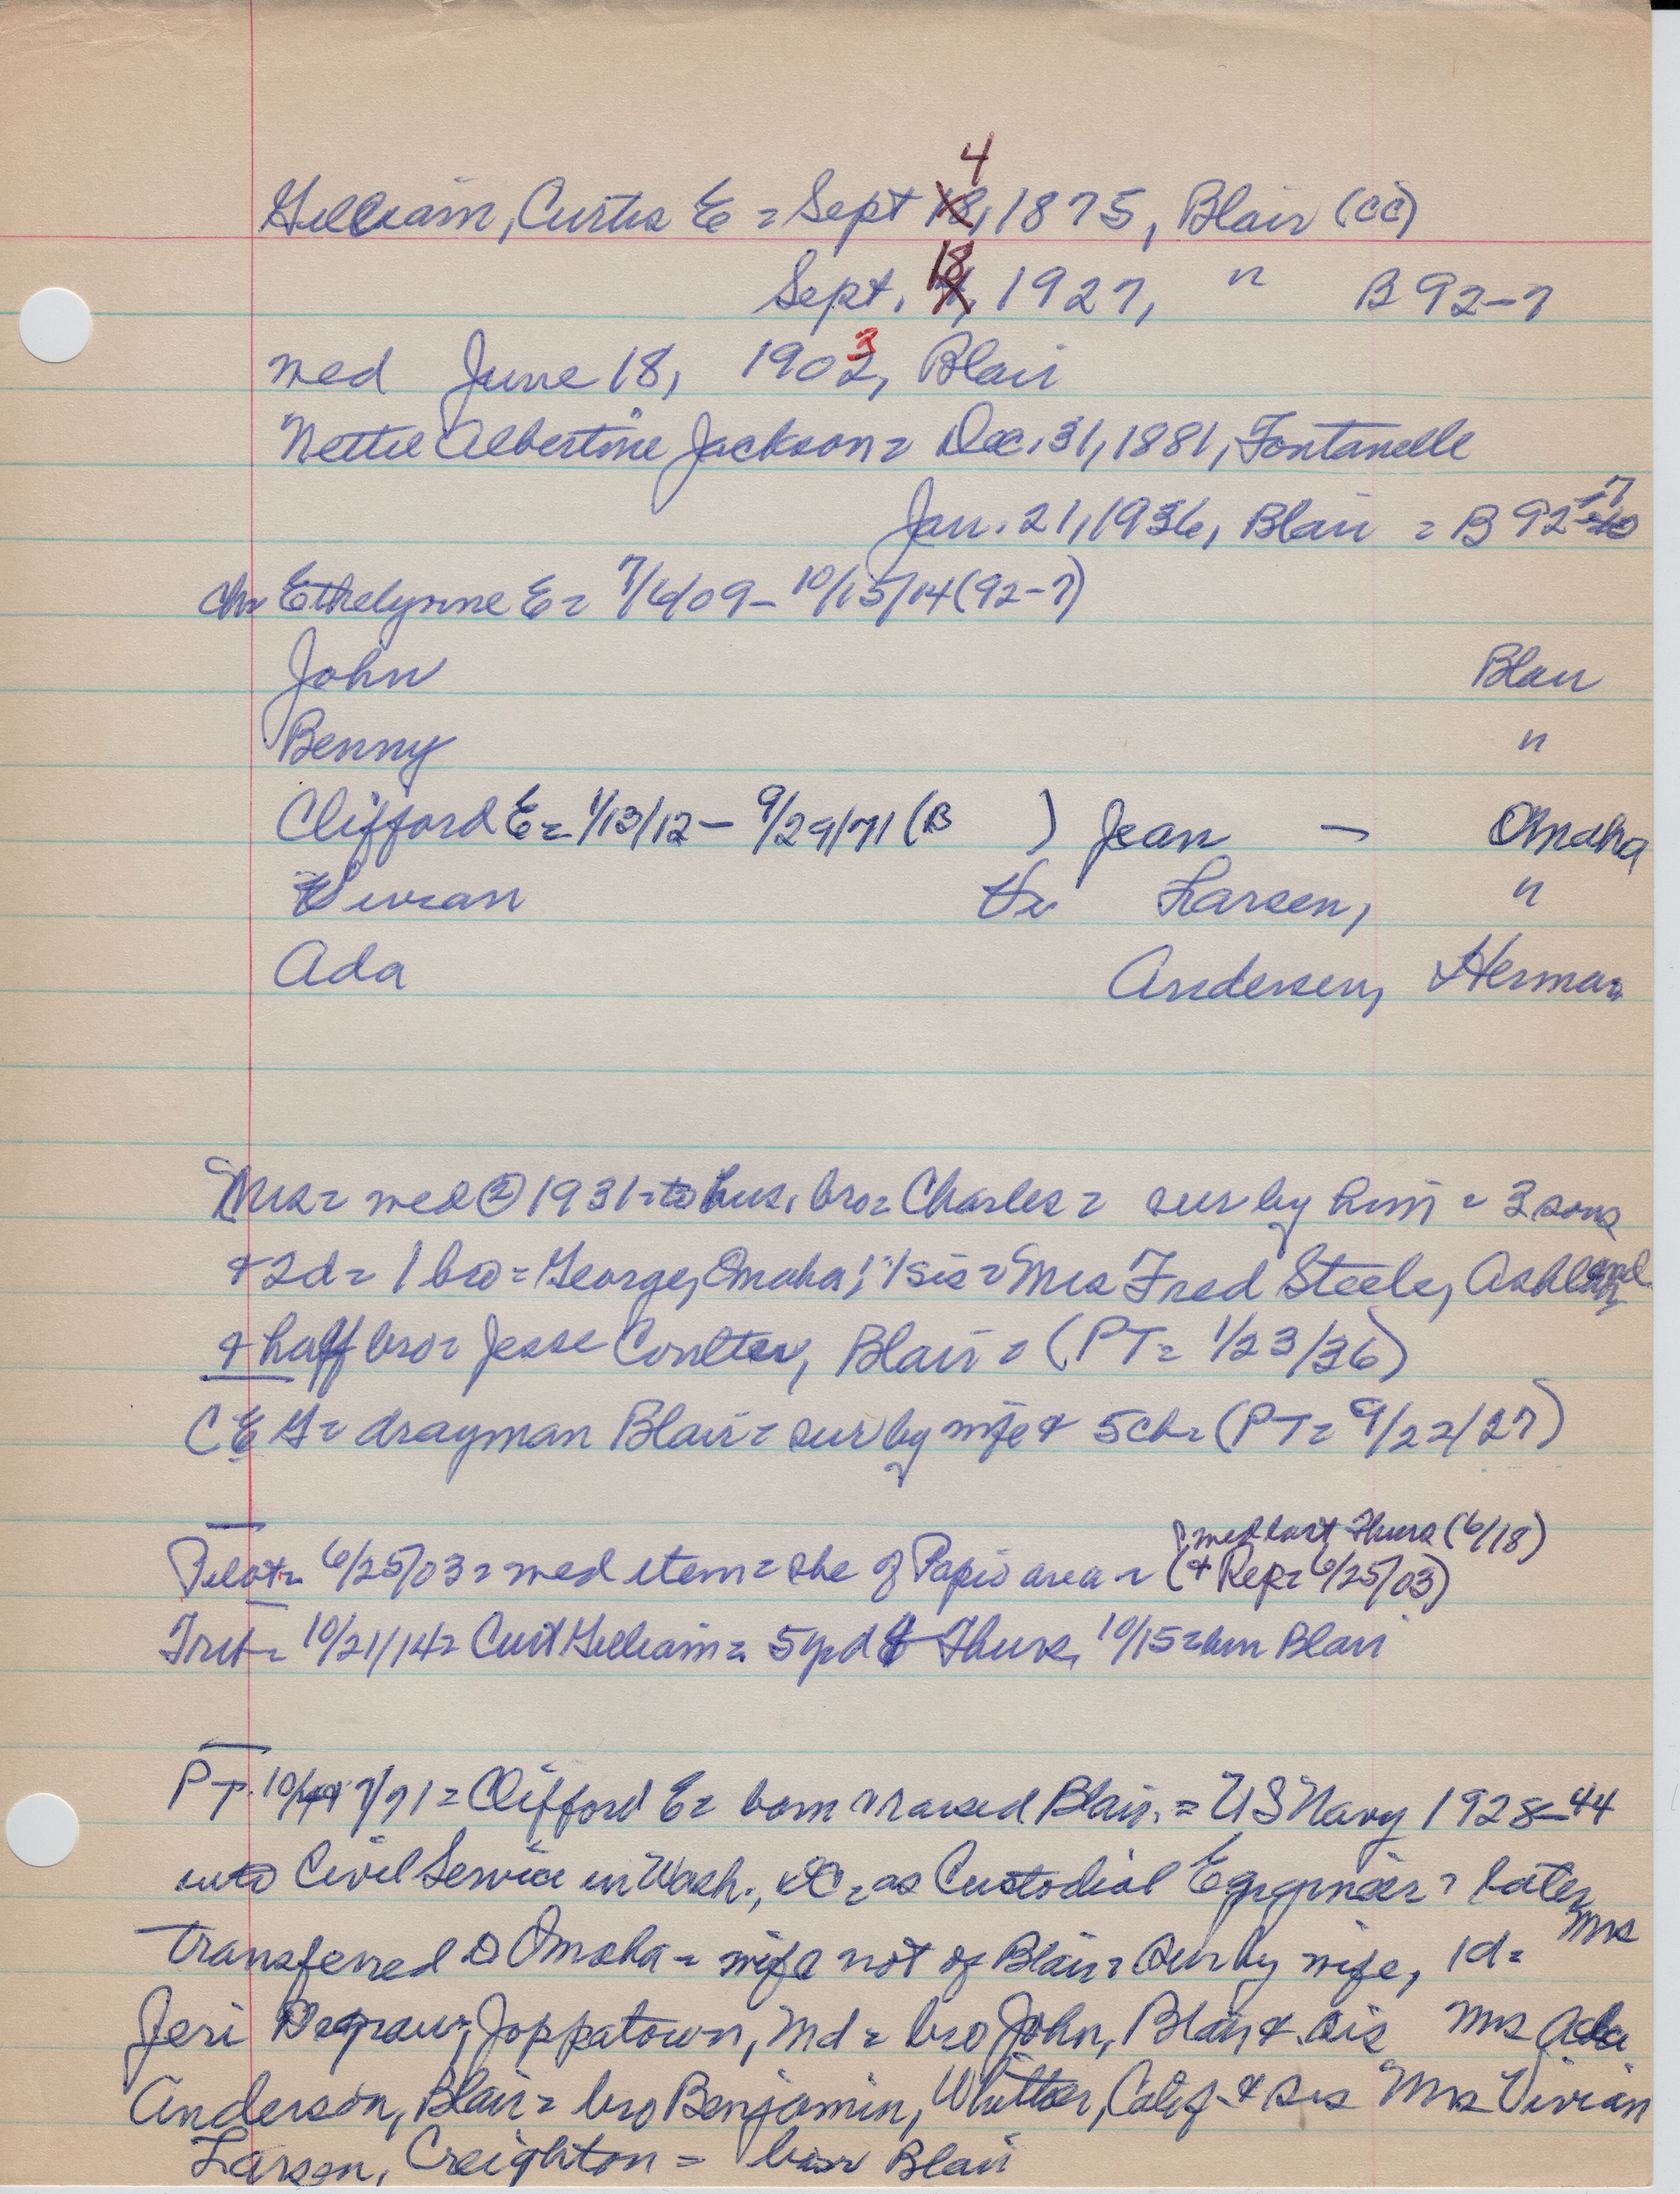 Gilliam, Curtis E = Sept 18, 4 1875, Blair (CC)
Sept. 4, 18 1927, " B 92-7
med June 18, 1902, 3 Blair
Nettie Albertine Jackson = Dec. 31, 1881, Fontanelle
Jan. 21, 1936, Blair = B 92-7
ch= Ethelynne E = 7/6/09 - 10/15/14 (92-7)
John Blair
Benny "
Clifford E = 1/13/12 - 9/29/71 (B ) Jean — Omaha
Vivian Larsen, "
Ada Andersen, Herman
Mrs = med ② 1931 = to hus. bro = Charles = sur by him = 3 sons
+ 2d = 1 bro = George, Omaha; 1 sis = Mrs Fred Steele, Ashland
+ half bro = Jesse Coulter, Blair = (PT = 1/23/36)
C E G = drayman Blair = sur by wife + 5 ch = (PT = 9/22/27)
med last Thurs (6/18)
Pilot = 6/25/03 = med item = she of Papio area = (+ Rep = 6/25/03)
Trib = 10/21/14 = Curt Gilliam = 5 yr d Thurs, 10/15 = bur Blair
PT. 10/7/71 = Clifford E = born & raised Blair. = US Navy 1928-44
into Civil Service in Wash., DC = as Custodial Egngineer = later
transferred to Omaha = wife not of Blair = sur by wife, 1d = Mrs
Jeri Degraw, Joppatown, Md = bro John, Blair & sis Mrs Ada
Anderson, Blair = bro Benjamin, Whitter, Calif. & sis Mrs Vivian
Larson, Creighton = bur Blair